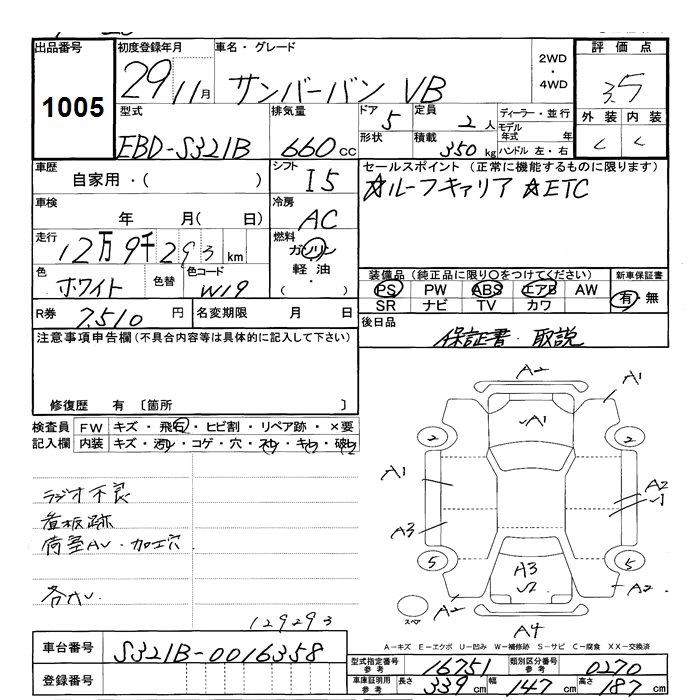 出品番号 初度登録年月 車名・グレード 2WD・4WD 評価点
1005 29 11月 サンバーバン VB 3.5
型式 排気量 ドア 5 定員 2人 ディーラー・並行 外装 内装
EBD-S321B 660cc 形状 積載 350kg モデル年式 年 ハンドル 左・右 C C
車歴 自家用・( ) シフト I5 セールスポイント(正常に機能するものに限ります)
☆ルーフキァリア ☆ETC
車検 年 月( 日) 冷房 AC
走行 12万9千293km 燃料 ガソリン・軽油・( )
色 ホワイト 色替 色コード W19
装備品(純正品に限り〇をつけてください) 新車保証書
PS PW ABS エアB AW 有・無
SR ナビ TV カワ
R券 7,510円 名変期限 月 日 後日品
保証書・取説
注意事項申告欄(不具合内容等は具体的に記入して下さい)
修復歴 有 〔箇所 〕
検査員記入欄 FW キズ・飛石・ヒビ割・リペア跡・×要
内装 キズ・汚レ・コゲ・穴・スレ・キレ・破レ
ラジオ不良
看板跡
荷室AU・加工穴
各小U
129293
A2
A1
A1
2 2
A1
A2
U1
A3
A3
U2
5 5
A2
A2
スペア
A4
A-キズ E-エクボ U-凹み W-補修跡 S-サビ C-腐食 XX-交換済
車台番号 S321B-0016358
型式指定番号 参考 16751 類別区分番号 参考 0270
登録番号
車庫証明用 参考 長さ 339cm 幅 147cm 高さ 187cm